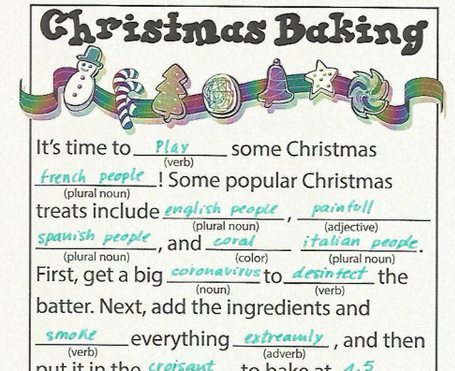 Christmas Baking
It's time to Play some Christmas
(verb)
french people! Some popular Christmas
(plural noun)
treats include english people, painfull
(plural noun) (adjective)
spanish people, and coral italian people.
(plural noun) (color) (plural noun)
First, get a big coronavirus to desinfect the
(noun) (verb)
batter. Next, add the ingredients and
smoke everything extreamly, and then
(verb) (adverb)
put it in the croisant to bake at 4.5